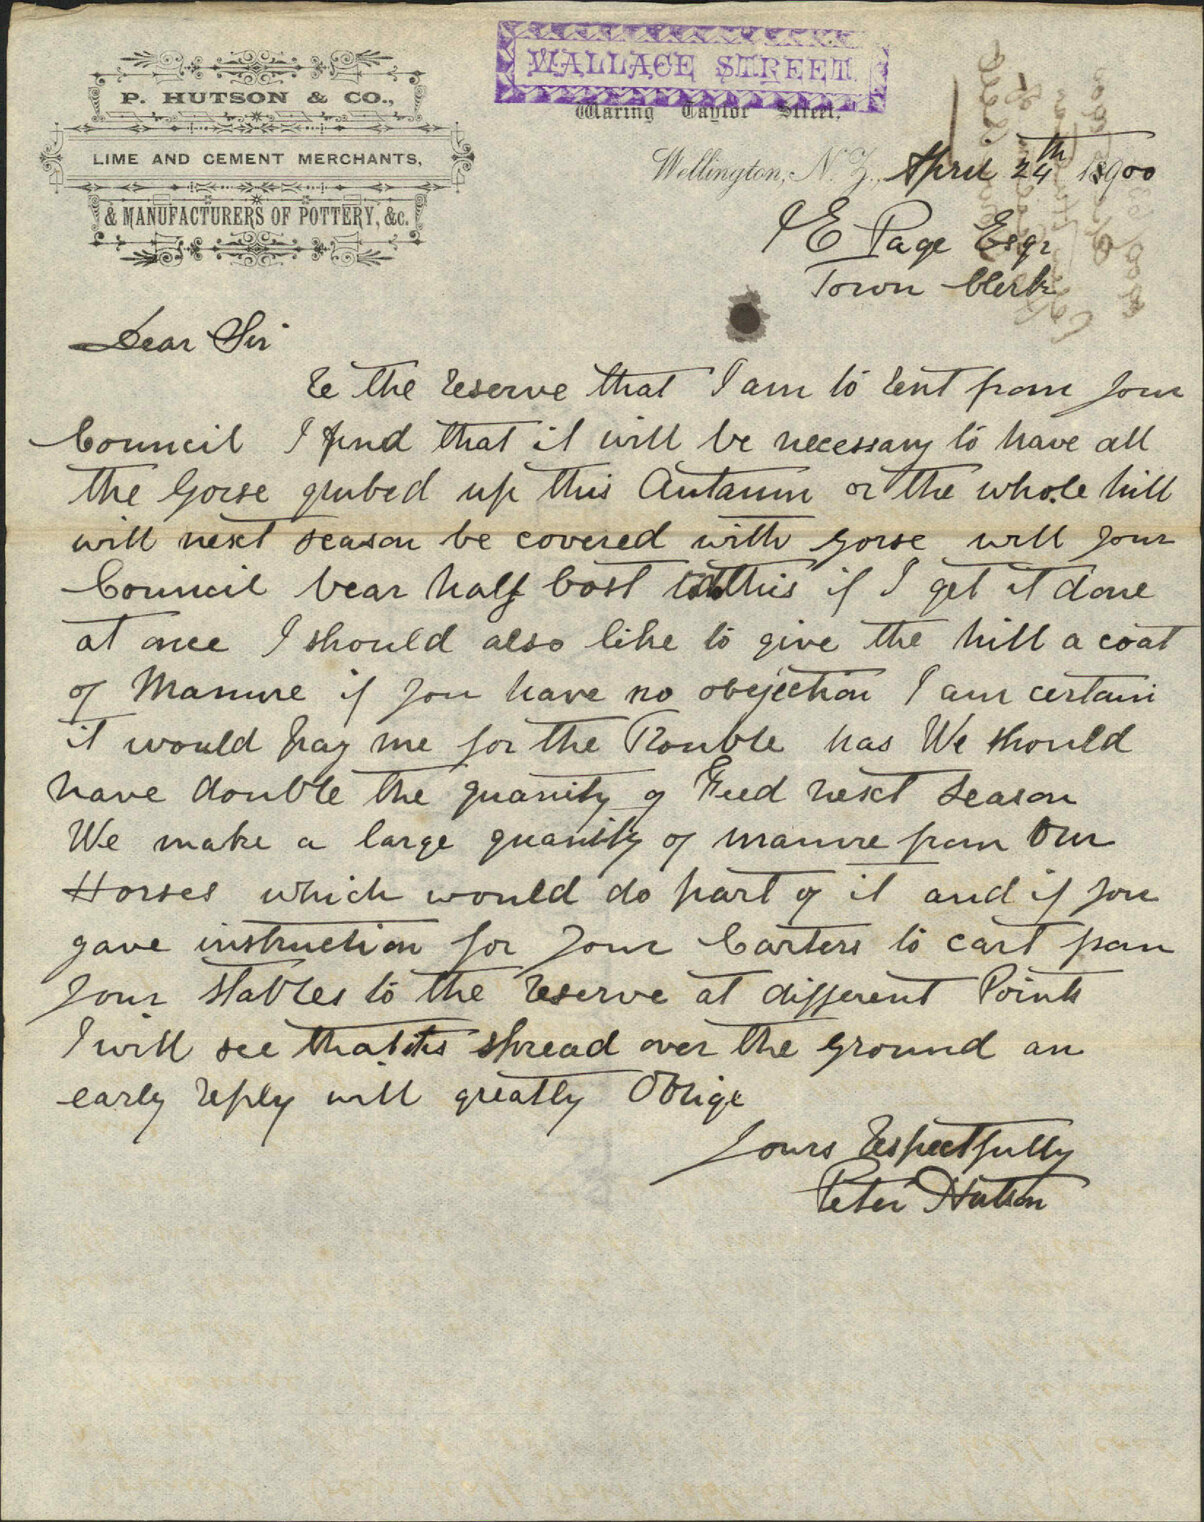 P. HUTSON & CO.,
LIME AND CEMENT MERCHANTS,
& MANUFACTURERS OF POTTERY, &c.
WALLACE STREET.
Waring Taylor Street,
Wellington, N. Z., April 24th 1900
E Page Esqr
Town Clerk
Dear Sir
Re the Reserve that I am to Rent from your
Council I find that it will be necessary to have all
the Gorse grubed up this Autaumn or the whole hill
will next season be covered with gorse will your
Council bear half Cost this if I get it done
at once I should also like to give the hill a coat
of Manure if you have no obejection I am certain
it would pay me for the Trouble has We should
have double the quanity of Feed next Season
We make a large quanity of manure from Our
Horses which would do part of it and if you
gave instruction for your Carters to cart from
your Stables to the Reserve at different Points
I will see that its spread over the ground an
early reply will greatly Oblige
Yours Respectfully
Peter Hutson